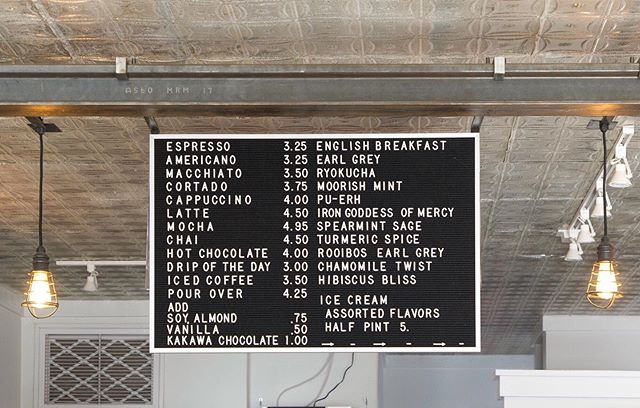 A560 MRM 17
ESPRESSO 3.25
AMERICANO 3.25
MACCHIATO 3.50
CORTADO 3.75
CAPPUCCINO 4.00
LATTE 4.50
MOCHA 4.95
CHAI 4.50
HOT CHOCOLATE 4.00
DRIP OF THE DAY 3.00
ICED COFFEE 3.50
POUR OVER 4.25
ADD
SOY, ALMOND .75
VANILLA .50
KAKAWA CHOCOLATE 1.00
ENGLISH BREAKFAST
EARL GREY
RYOKUCHA
MOORISH MINT
PU-ERH
IRON GODDESS OF MERCY
SPEARMINT SAGE
TURMERIC SPICE
ROOIBOS EARL GREY
CHAMOMILE TWIST
HIBISCUS BLISS
ICE CREAM
ASSORTED FLAVORS
HALF PINT 5.
→ – → – → –